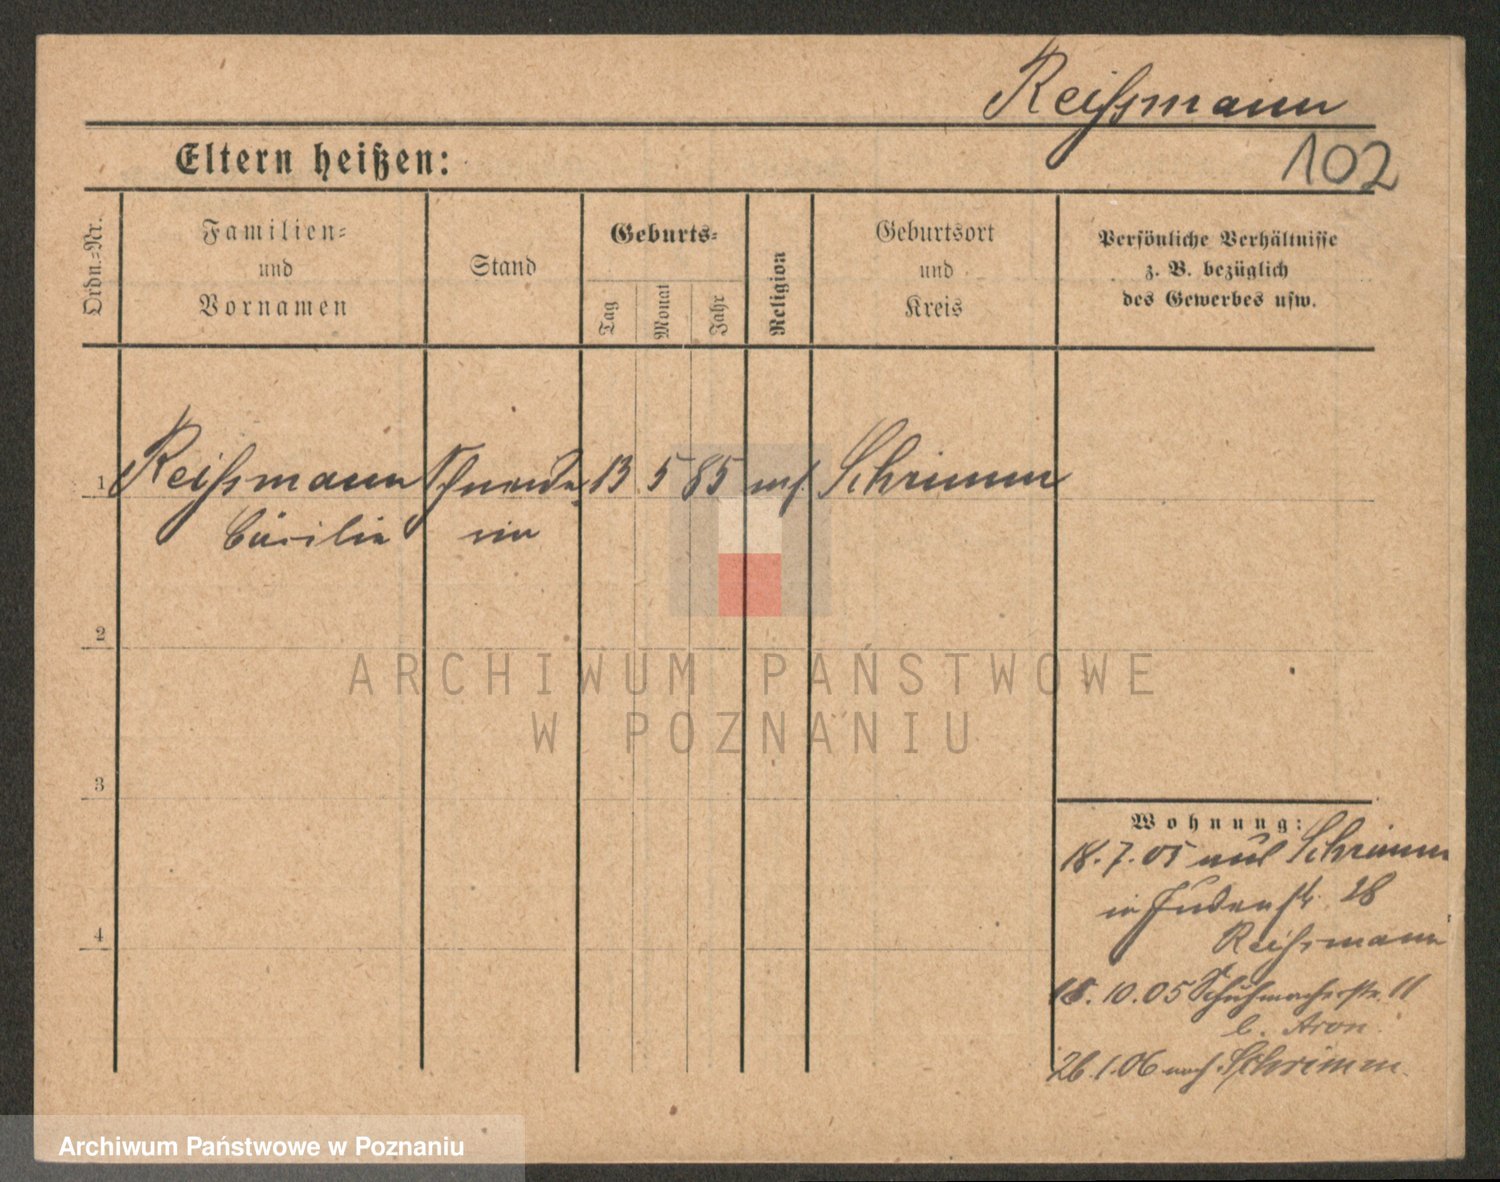 Reißmann
Eltern heißen:
102
Ordn.-Nr.
Familien-
und
Vornamen
Stand
Geburts-
Tag
Monat
Jahr
Religion
Geburtsort
und
Kreis
Persönliche Verhältnisse
z. B. bezüglich
des Gewerbes usw.
1 Reißmann Schneide 13 5 85 mos. Schrimm
Cäcilie rin
2
ARCHIWUM PAŃSTWOWE
W POZNANIU
3
Wohnung:
18.7.05 aus Schrimm
in Judenstr. 28
Reißmann
15.10.05 Schuhmacherstr. 11
b. Aron
4
26.1.06 nach Schrimm.
Archiwum Państwowe w Poznaniu